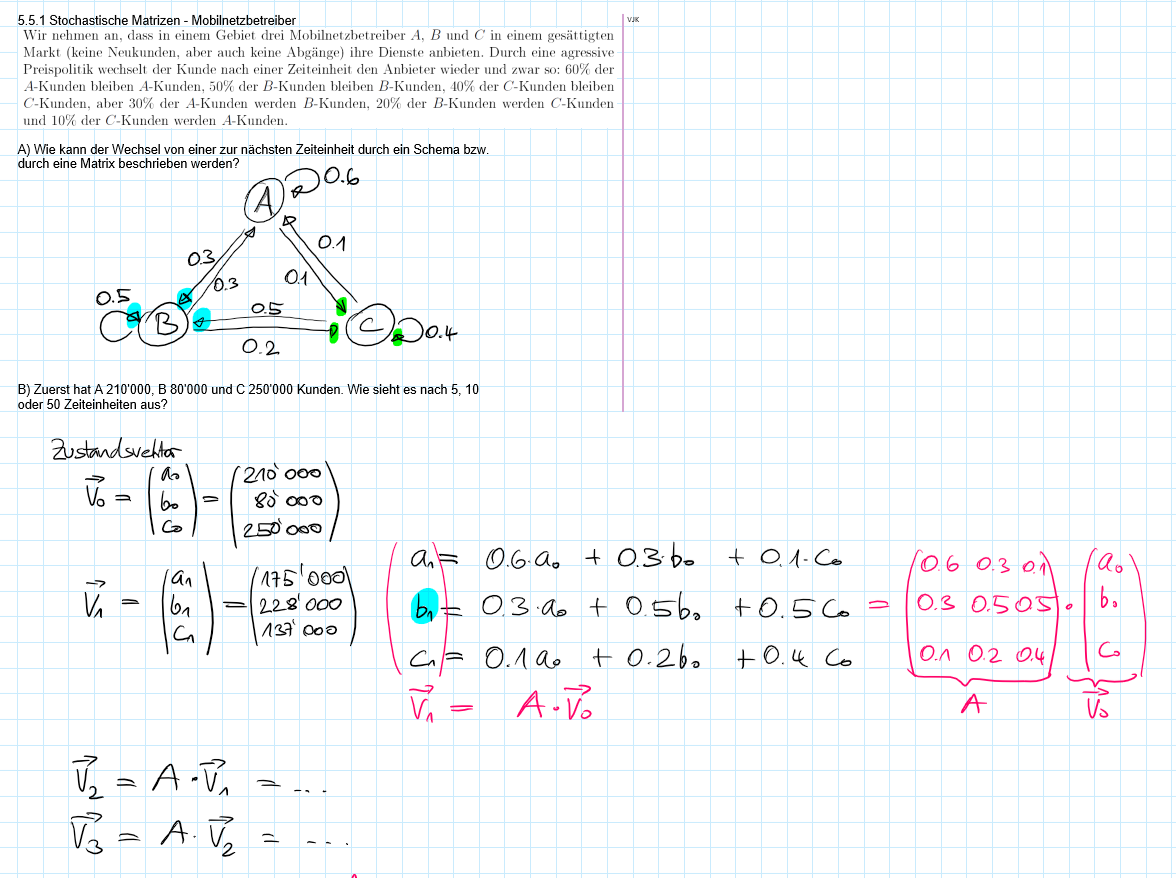 5.5.1 Stochastische Matrizen - Mobilnetzbetreiber
VJK
Wir nehmen an, dass in einem Gebiet drei Mobilnetzbetreiber A, B und C in einem gesättigten
Markt (keine Neukunden, aber auch keine Abgänge) ihre Dienste anbieten. Durch eine agressive
Preispolitik wechselt der Kunde nach einer Zeiteinheit den Anbieter wieder und zwar so: 60% der
A-Kunden bleiben A-Kunden, 50% der B-Kunden bleiben B-Kunden, 40% der C-Kunden bleiben
C-Kunden, aber 30% der A-Kunden werden B-Kunden, 20% der B-Kunden werden C-Kunden
und 10% der C-Kunden werden A-Kunden.
A) Wie kann der Wechsel von einer zur nächsten Zeiteinheit durch ein Schema bzw.
durch eine Matrix beschrieben werden?
A 0.6
0.3 0.1
0.3 0.1
0.5 B 0.5 C 0.4
0.2
B) Zuerst hat A 210'000, B 80'000 und C 250'000 Kunden. Wie sieht es nach 5, 10
oder 50 Zeiteinheiten aus?
Zustandsvektor
a₀ 210'000
V₀ = b₀ = 80'000
c₀ 250'000
a₁ 175'000
V₁ = b₁ = 228'000
c₁ 137'000
a₁ = 0.6·a₀ + 0.3·b₀ + 0.1·c₀
b₁ = 0.3·a₀ + 0.5b₀ + 0.5c₀
c₁ = 0.1a₀ + 0.2b₀ + 0.4c₀
0.6 0.3 0.1 a₀
= 0.3 0.5 0.5 · b₀
0.1 0.2 0.4 c₀
V₁ = A·V₀
A V₀
V₂ = A·V₁ = ...
V₃ = A·V₂ = ...